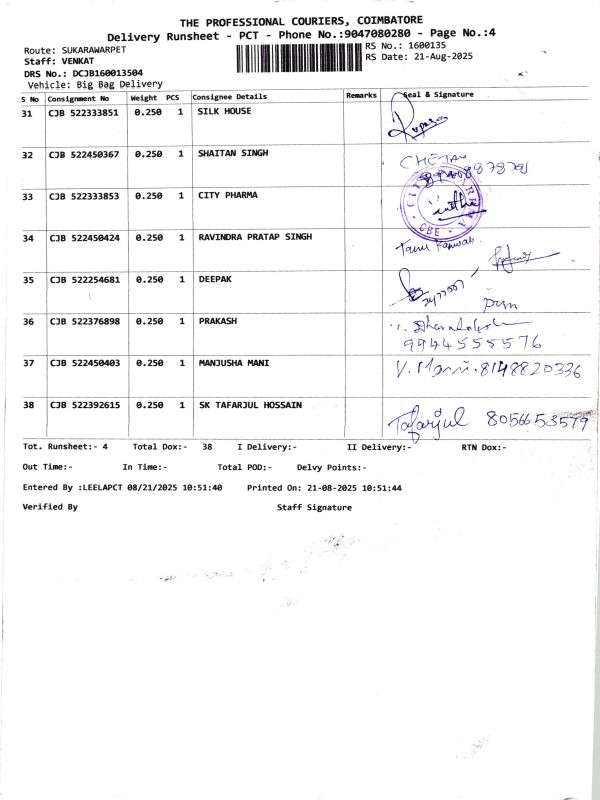 THE PROFESSIONAL COURIERS, COIMBATORE
Delivery Runsheet - PCT - Phone No.:9047080280 - Page No.:4
Route: SUKARAWARPET
RS No.: 1600135
Staff: VENKAT
RS Date: 21-Aug-2025
DRS No.: DCJB160013504
Vehicle: Big Bag Delivery
S No Consignment No Weight PCS Consignee Details Remarks Seal & Signature
31 CJB 522333851 0.250 1 SILK HOUSE
32 CJB 522450367 0.250 1 SHAITAN SINGH CHETAN
33 CJB 522333853 0.250 1 CITY PHARMA
CBE
34 CJB 522450424 0.250 1 RAVINDRA PRATAP SINGH
35 CJB 522254681 0.250 1 DEEPAK
36 CJB 522376898 0.250 1 PRAKASH
9944555576
37 CJB 522450403 0.250 1 MANJUSHA MANI V. Mani. 8148820336
38 CJB 522392615 0.250 1 SK TAFARJUL HOSSAIN
Tafarjul 8056653579
Tot. Runsheet:- 4 Total Dox:- 38 I Delivery:- II Delivery:- RTN Dox:-
Out Time:- In Time:- Total POD:- Delvy Points:-
Entered By :LEELAPCT 08/21/2025 10:51:40 Printed On: 21-08-2025 10:51:44
Verified By Staff Signature